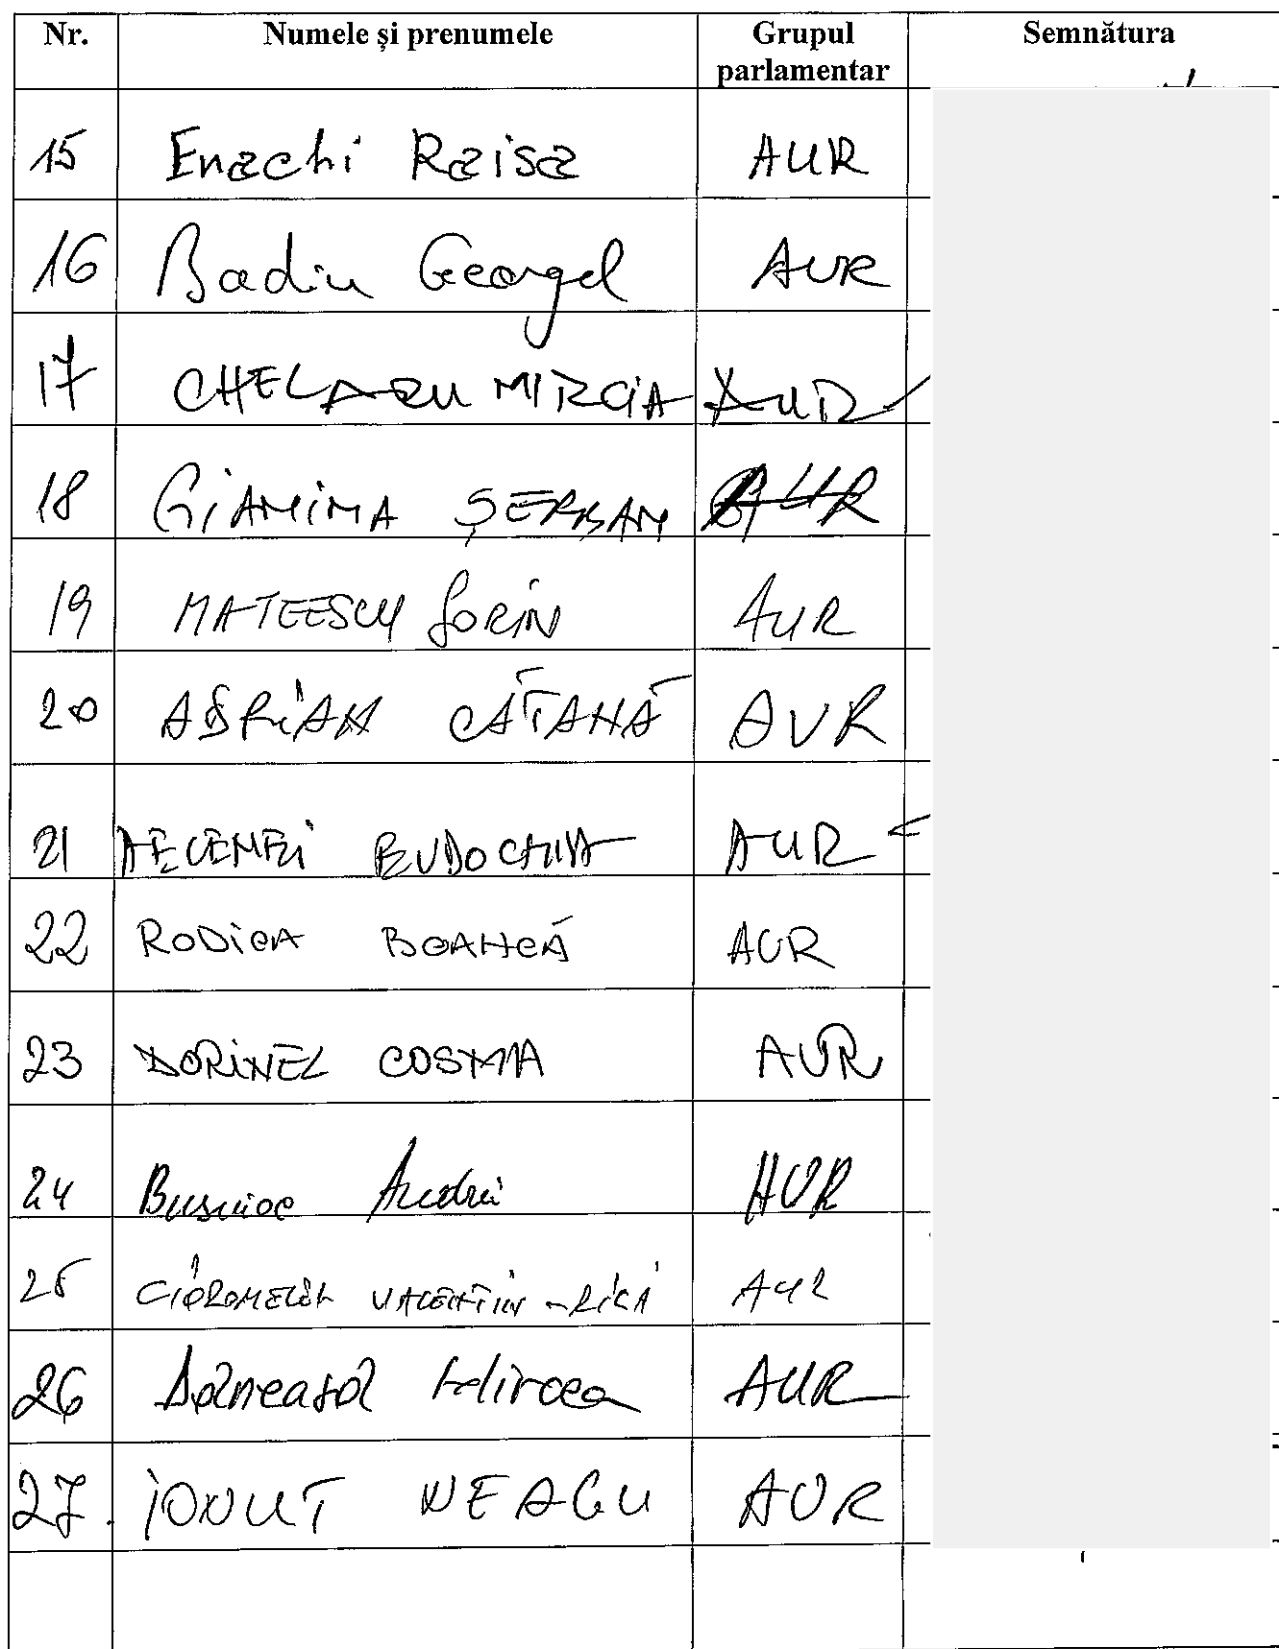 Nr. Numele și prenumele Grupul parlamentar Semnătura
15 Enachi Raisa AUR
16 Badiu Georgel AUR
17 CHELARU MIRCIA AUR
18 GIANINA ȘERBAN AUR
19 MATEESCU SORIN AUR
20 ADRIAN CĂTANĂ AUR
21 AEVEMEI EUDOCHIA AUR
22 RODICA BOANCĂ AUR
23 DORINEL COSMA AUR
24 Busuioc Andrei AUR
25 VALENTIN-RICĂ AUR
26 Mircea AUR
27. IONUT NEAGU AUR